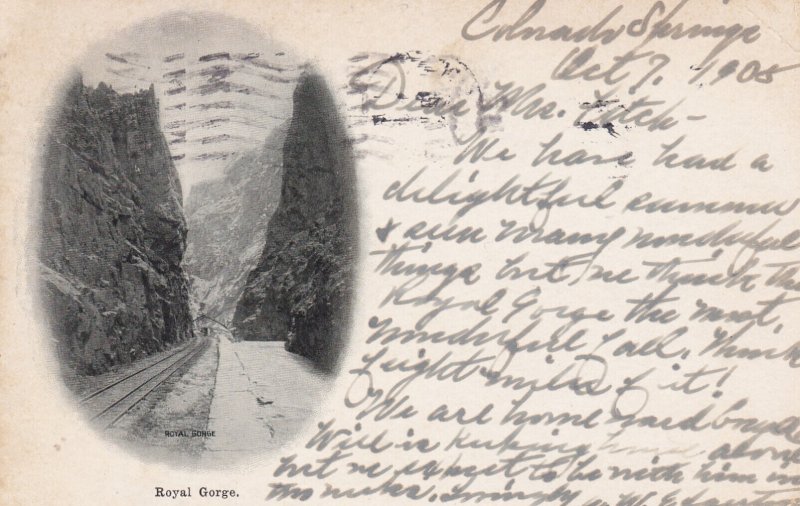 Colorado Springs
Oct 7, 1905
Dear Mrs. Fitch-
We have had a
delightful summer
& seen many wonderful
things but we think the
Royal Gorge the most
wonderful of all. Think
Eight miles of it!
We are homeward bound
Will is keeping house alone
but we expect to be with him in
two weeks. Lovingly
ROYAL GORGE
Royal Gorge.